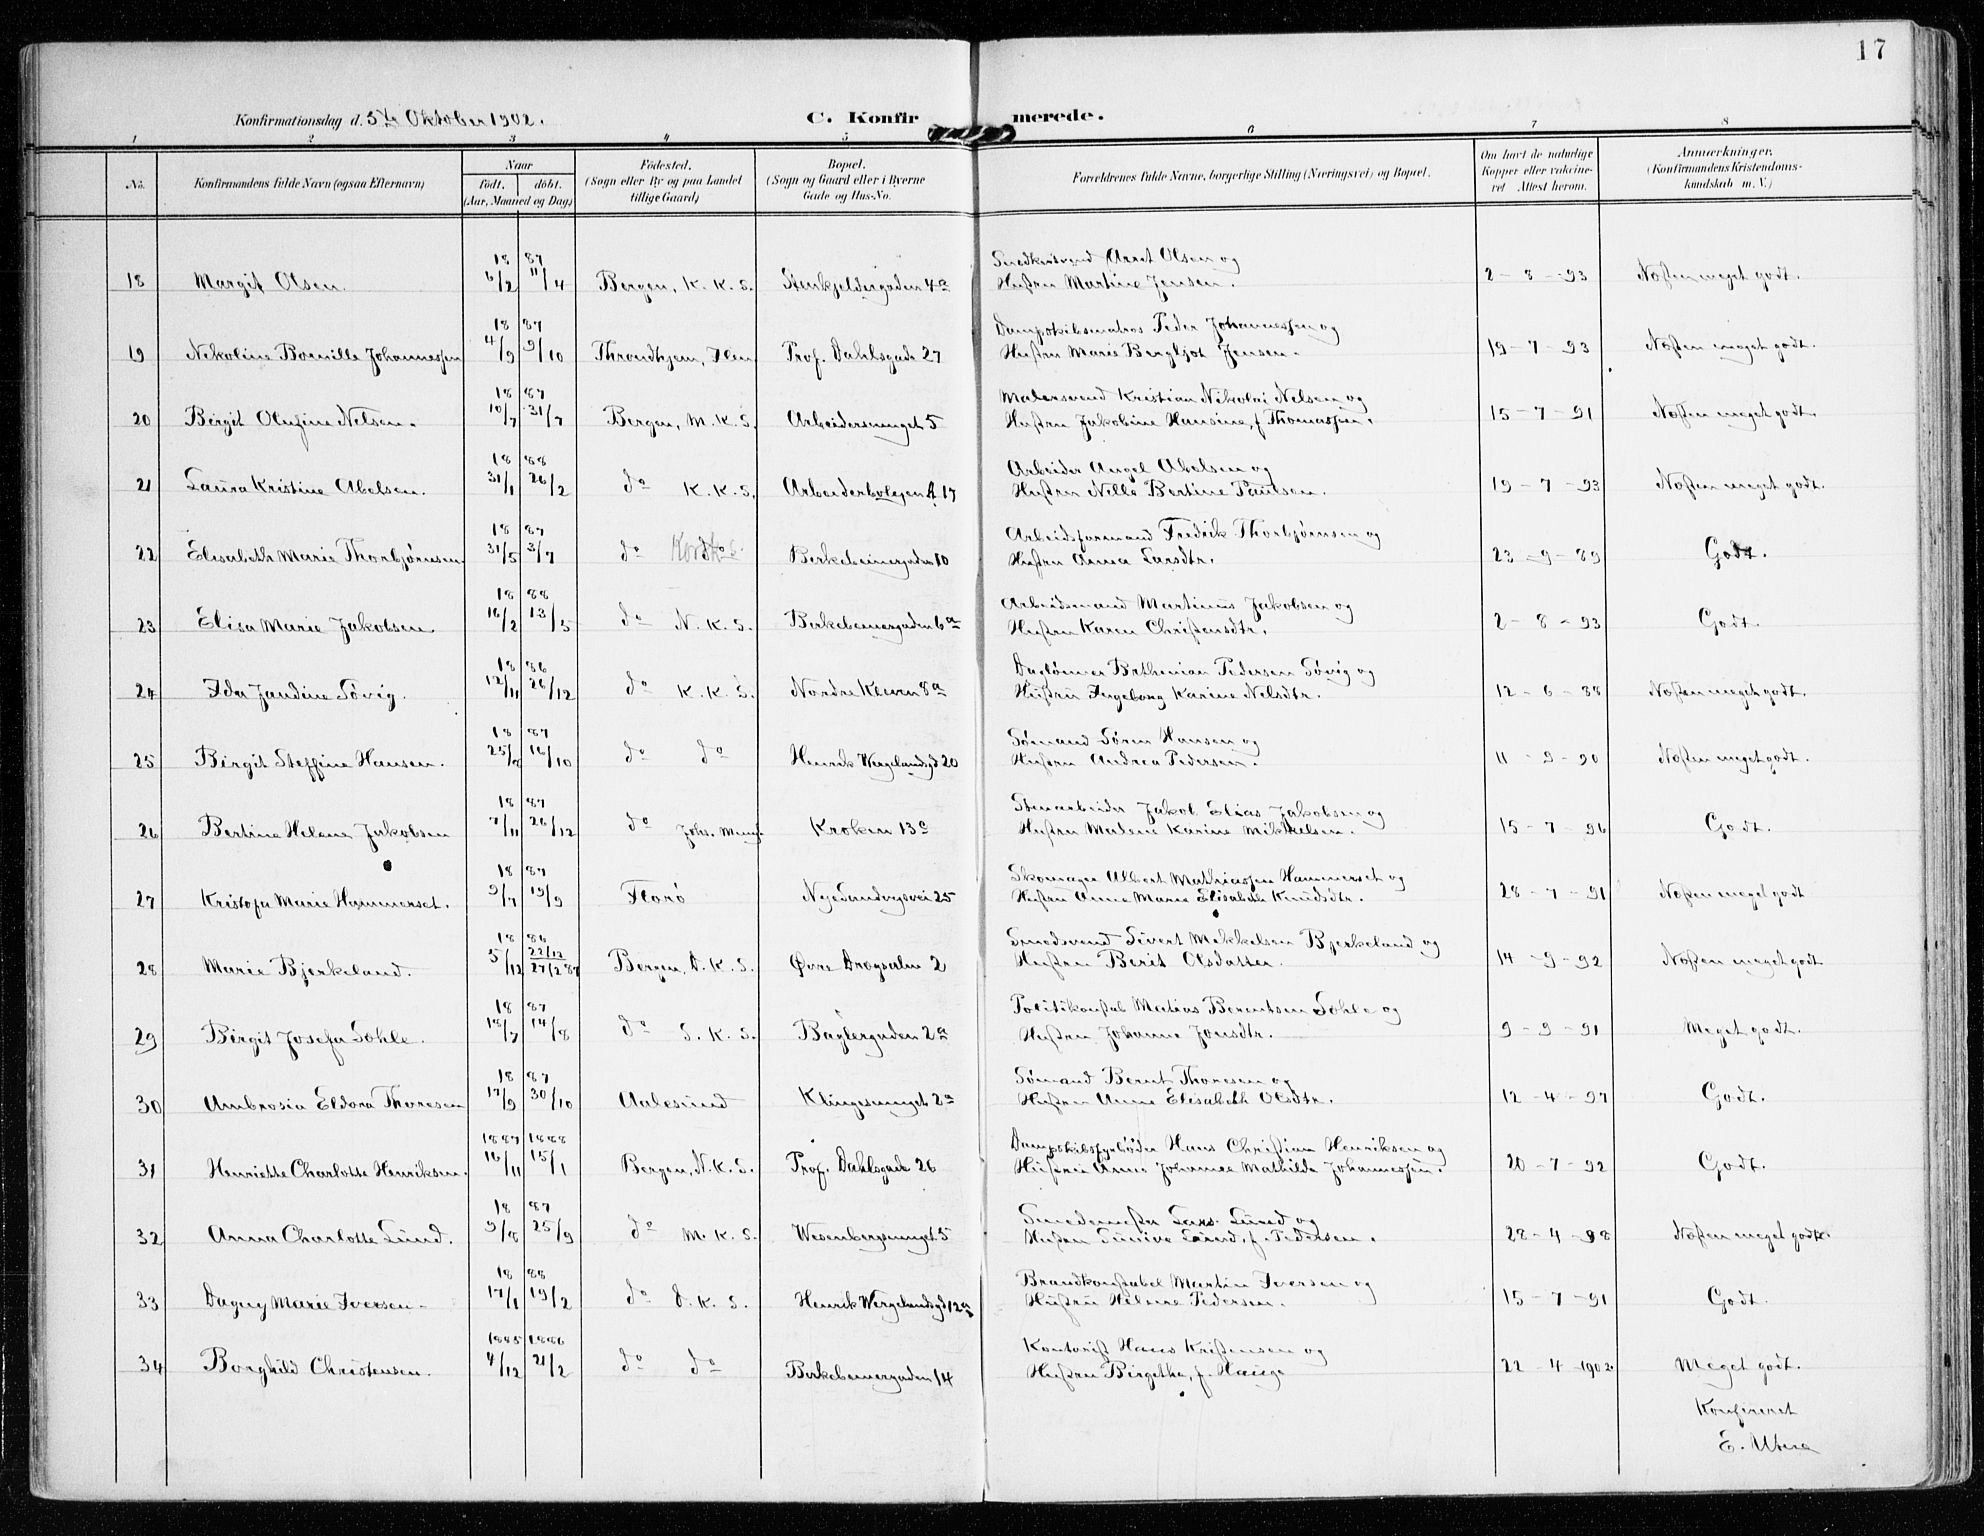 17
Konfirmationsdag d. 5te Oktober 1902. C. Konfirmerede.
1 2 3 4 5 6 7 8
No. Konfirmandens fulde Navn (ogsaa Efternavn) Naar født. døbt. (Aar, Maaned og Dag) Fødested. (Sogn eller By og paa Landet tillige Gaard) Bopæl. (Sogn og Gaard eller i Byerne Gade og Hus-No. Forældrenes fulde Navne, borgerlige Stilling (Næringsvei) og Bopæl. Om havt de naturlige Kopper eller vakcineret Attest herom. Anmærkninger. (Konfirmandens Kristendomskundskab m. V.)
18 87 Snedkersvend Olsen og
18 Margit Olsen. 6/2 11/4 Bergen, K. K. S. Stenkjeldergaden 4a Hustru Martine Jensen. 2-8-93 Næsten meget godt.
18 87 Dampskibsmatros Peder Johannessen og
19 Nikoline Bornille Johannessen 4/9 9/10 Throndhjem, Ilen Prof. Dahlsgade 27 Hustru Marie Bergljot Jensen. 19-7-93 Næsten meget godt.
18 87 Malersvend Kristian Nikolai Nelsen og
20 Birgit Olufine Nelsen. 10/7 31/7 Bergen, M. K. S. Arbeidersmuget 5 Hustru Jakobine Hansine, f. Thomassen. 15-7-91 Næsten meget godt.
18 88 Arbeider Angel Abelsen og
21 Laura Kristine Abelsen. 31/1 26/2 do K. K. S. Arbeiderbolegen A 17 Hustru Nille Bertine Paulsen. 19-7-93 Næsten meget godt.
18 87 Arbeidsformand Fredrik Thorbjørnsen og
22 Elisabeth Marie Thorbjørnsen. 31/5 3/7 do Birkebeinergaden 10 Hustru Anna Larsdtr. 23-9-89 Godt.
18 88 Arbeidsmand Martinus Jakobsen og
23 Elisa Marie Jakobsen. 16/2 13/5 do N. K. S. Birkebeinergaden 6a Hustru Karen Christensdtr. 2-8-93 Godt.
18 86 Dagtønner Pedersen Søvig og
24 Ida Jandine Søvig. 12/11 26/12 do K. K. S. Nordre Kleven 8a Hustru Ingeborg Karine Nelsdtr. 12-6-88 Næsten meget godt.
18 87 Sømand Søren Hansen og
25 Birgit Steffine Hansen. 25/8 16/10 do do Henrik Wergelandsgd 20 Hustru Andrea Pedersen. 11-9-90 Næsten meget godt.
18 87 Stenarbeider Jakob Elias Jakobsen og
26 Bertine Helene Jakobsen 7/11 26/12 do Johs. Menf. Kroken 13c Hustru Malene Karine Mikkelsen. 15-7-96 Godt.
18 87 Skomager Albert Mathiassen Hammerset og
27 Kristofa Marie Hammerset. 9/7 19/9 Florø Nye Sandvigsvei 25 Hustru Anne Marie Elisabeth Knudsdtr. 28-7-91 Næsten meget godt
18 86 Smedsvend Sivert Mikkelsen Bjerkeland og
28 Marie Bjerkeland. 5/12 22/12 27/2 87 Bergen, D. K. S. Øvre Dregsalm 2 Hustru Berit Olsdatter. 14-9-92 Næsten meget godt
18 87 Politikonstab Matias Berentsen Sohle og
29 Birgit Josefa Sohle. 18/7 14/8 do S. K. S. Baglergaden 2a Hustru Johanne Jonsdtr. 9-9-91 Meget godt.
18 87 Sømand Bernt Thoresen og
30 Ambrosia Eldora Thoresen 17/9 30/10 Aalesund Klingesmuget 2a Hustru Anne Elisabeth Olsdtr. 12-4-97 Godt.
1887 1888 Dampskibsfyrbøder Hans Christian Henriksen og
31 Henriette Charlotte Henriksen. 16/11 15/1 Bergen, N. K. S. Prof. Dahlsgade 26 Hustru Anne Johanne Mathilde Johannessen. 20-7-92 Godt.
18 87 Smedemester Lars Lund og
32 Anna Charlotte Lund. 9/8 25/9 do M. K. S. Wesenbergsmuget 5 Hustru Sunive Lund, f. Pedersen. 28-4-98 Næsten meget godt.
18 88 Brandkonstabel Martin Iversen og
33 Dagny Marie Iversen 17/1 19/2 do D. K. S. Henrik Wergelandsgd 12a Hustru Helene Pedersen. 15-7-91 Godt.
1885 1886 Kontorist Hans Kristensen og
34 Borghild Christensen. 4/12 21/2 do do Birkebeinergaden 14 Hustru Birgithe, f. Hauge 22-4-1902. Meget godt.
Konfereret
E.